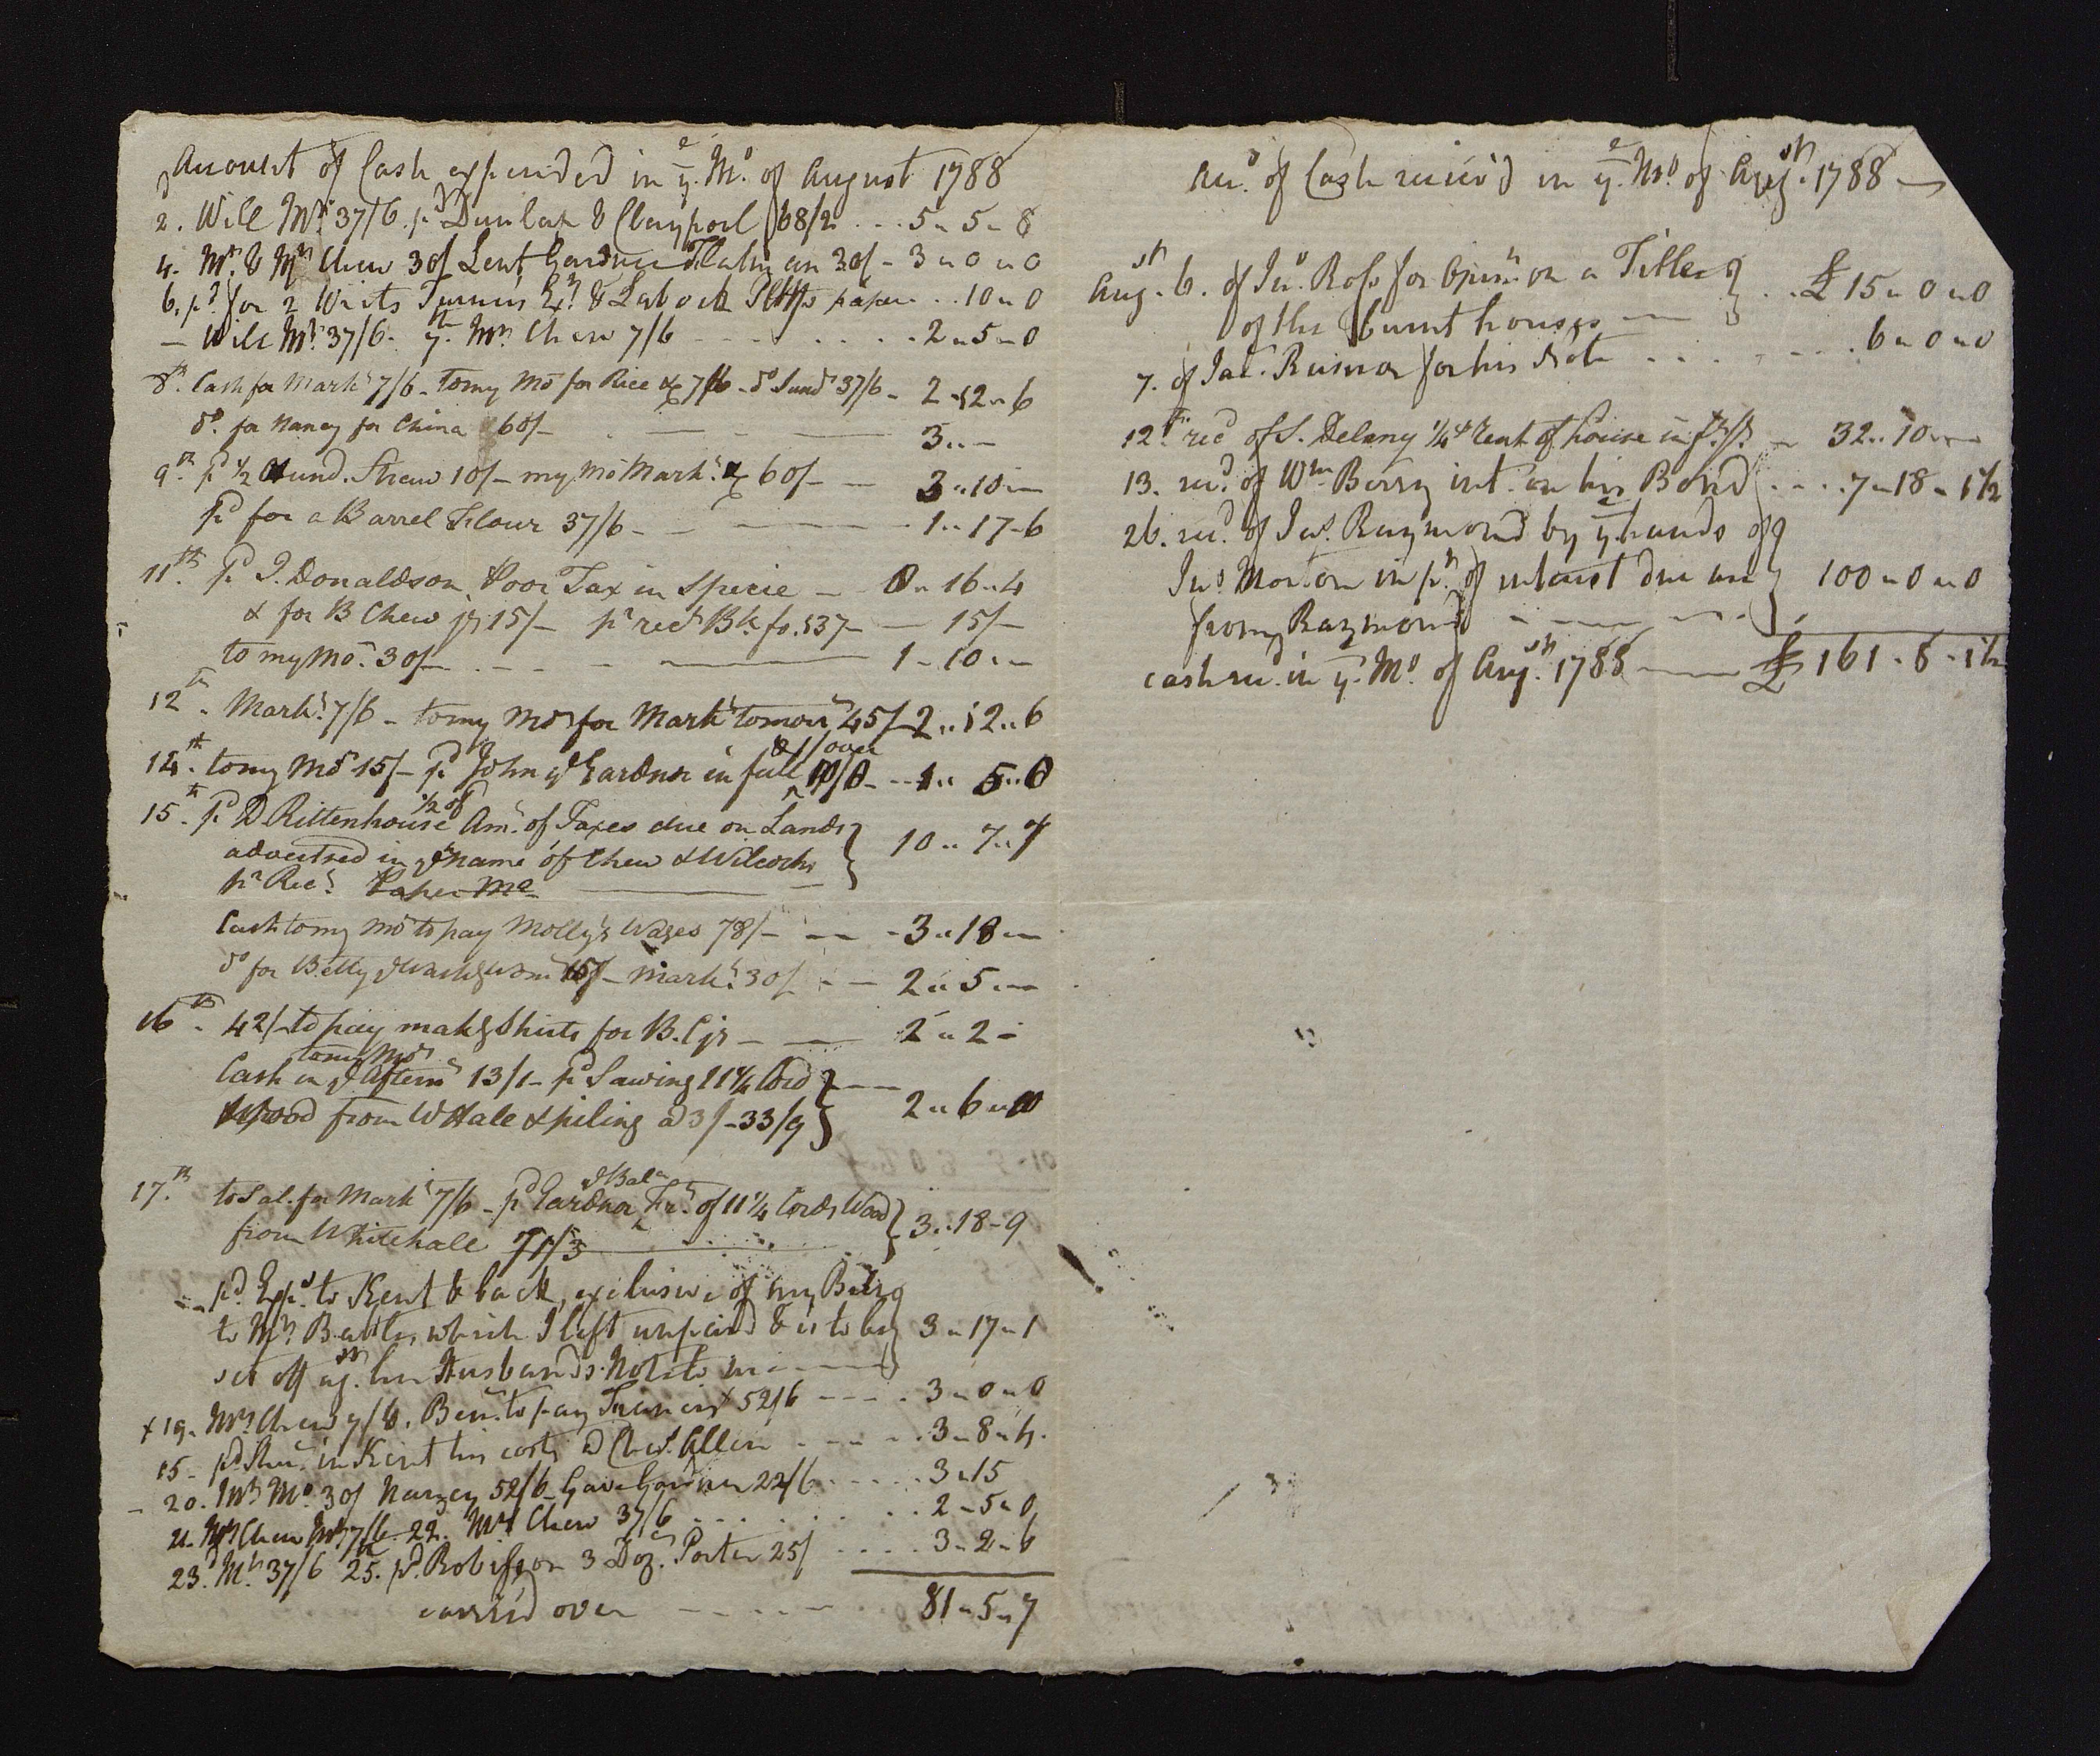 Account of Cash expended in ye. Mo. of August 1788
2. Will Mt. 37/6. pd Dunlap & Claypool 68/2 ... 5 " 5 " 8
4. Mr. & Mrs Chew 30/ Lent Gardner Italian 30/ - 3 " 0 " 0
6. pd for 2 Writs Turner & Labock paper .. 10 " 0
— Will Mt. 37/6. yth. Mrs Chew 7/6 - - - . . . . 2 " 5 " 0
8th. Cash for Markt 7/6 - to my Mor for Rice &c 7/6 - do Sund 37/6 - 2 " 12 " 6
do. for Nancy for China 60/- . — - — 3 " -
9th. pd ½ Hund. Straw 10/- my Mor Markt. & 60/- — 3 " 10 " —
Pd for a Barrel Flour 37/6 - - — . 1 " 17 - 6
11th. pd J. Donaldson Poor Tax in Specie - - 0 " 16 " 4
& for B Chew jr 15/- pr rect Bk. fo. 537 — — 15/-
to my Mor. 30/- . - - - — 1 - 10 " -
12th. Markt. 7/6 - to my Mor for Markt tomorw 45/- 2 " 12 " 6
14th. to my Mor 15/- pd John ye Gardner in full & 1/ over 10/0 - - 1 " 5 " 0
15th. pd D Rittenhouse ½ of Amt. of Taxes due on Lands
advertised in ye name of Chew & Wilcocks 10 " 7 " 7
pr Rect. Paper Mo —
Cash to my Mor to pay Molly's Wages 78/- - — - 3 " 18 " —
do for Betty ye Washg Wom 15/- Markt. 30/- - — 2 " 5 " —
16th. 42/- to pay makg Shirts for B. C jr - — 2 " 2 -
Cash to my Mor in ye Aftern 13/1 - pd Sawing 11 ¼ Cord
Wood from W Hale & piling a 3/- 33/9 2 " 6 " 10
17th. to Sal. for Markt 7/6 - pd Gardner ye Bale Frt. of 11 ¼ Cords Wood
from Whitehall 71/3 — 3 " 18 - 9
— pd. Exps. to Kent & back, exclusive of my Being
to Mrs Battle, which I left unpaid & is to be 3 " 17 " 1
set off agst. her Husband's Note to me —
x 19. Mrs Chew 7/6. Ben. to pay Francis 52/6 - - - . 3 " 0 " 0
15 - pd in Kent his costs a Allen . . - - . 3 " 8 " 4.
- 20. Mrs Mo. 30/ Nursery 52/6 Gave Gardner 22/6 . . . . . 3 " 15
21. Mrs Chew Mt. 7/6 22. Mrs Chew 37/6 . . . . . . . . 2 - 5 " 0
23d. Mt. 37/6 25. pd. Robisson 3 Doz. Porter 25/ . . . . 3 " 2 " 6
carried over - - . . - — . 81 " 5 " 7
Acct. of Cash receiv'd in ye. Mo. of Augst. 1788 —
Augst. 6. of Jno. Ross for Opinn on a Title
of the burnt houses — .. £ 15 " 0 " 0
7. of Jac. for his debt . . . . - - . 6 " 0 " 0
12th. recd of S. Delany ¼ Rent of house in ft. st. - 32 " 10 " —
13. recd. of Wm Berry int. on his Bond . . . 7 " 18 " 1½
26. recd. of Jas. Raymond by ye hands of
Jno Morton in pt. of interest due me 100 " 0 " 0
from Raymond - - — - - .
cash rec. in ye. Mo. of Augst. 1788 — £ 161 " 8 " 1½